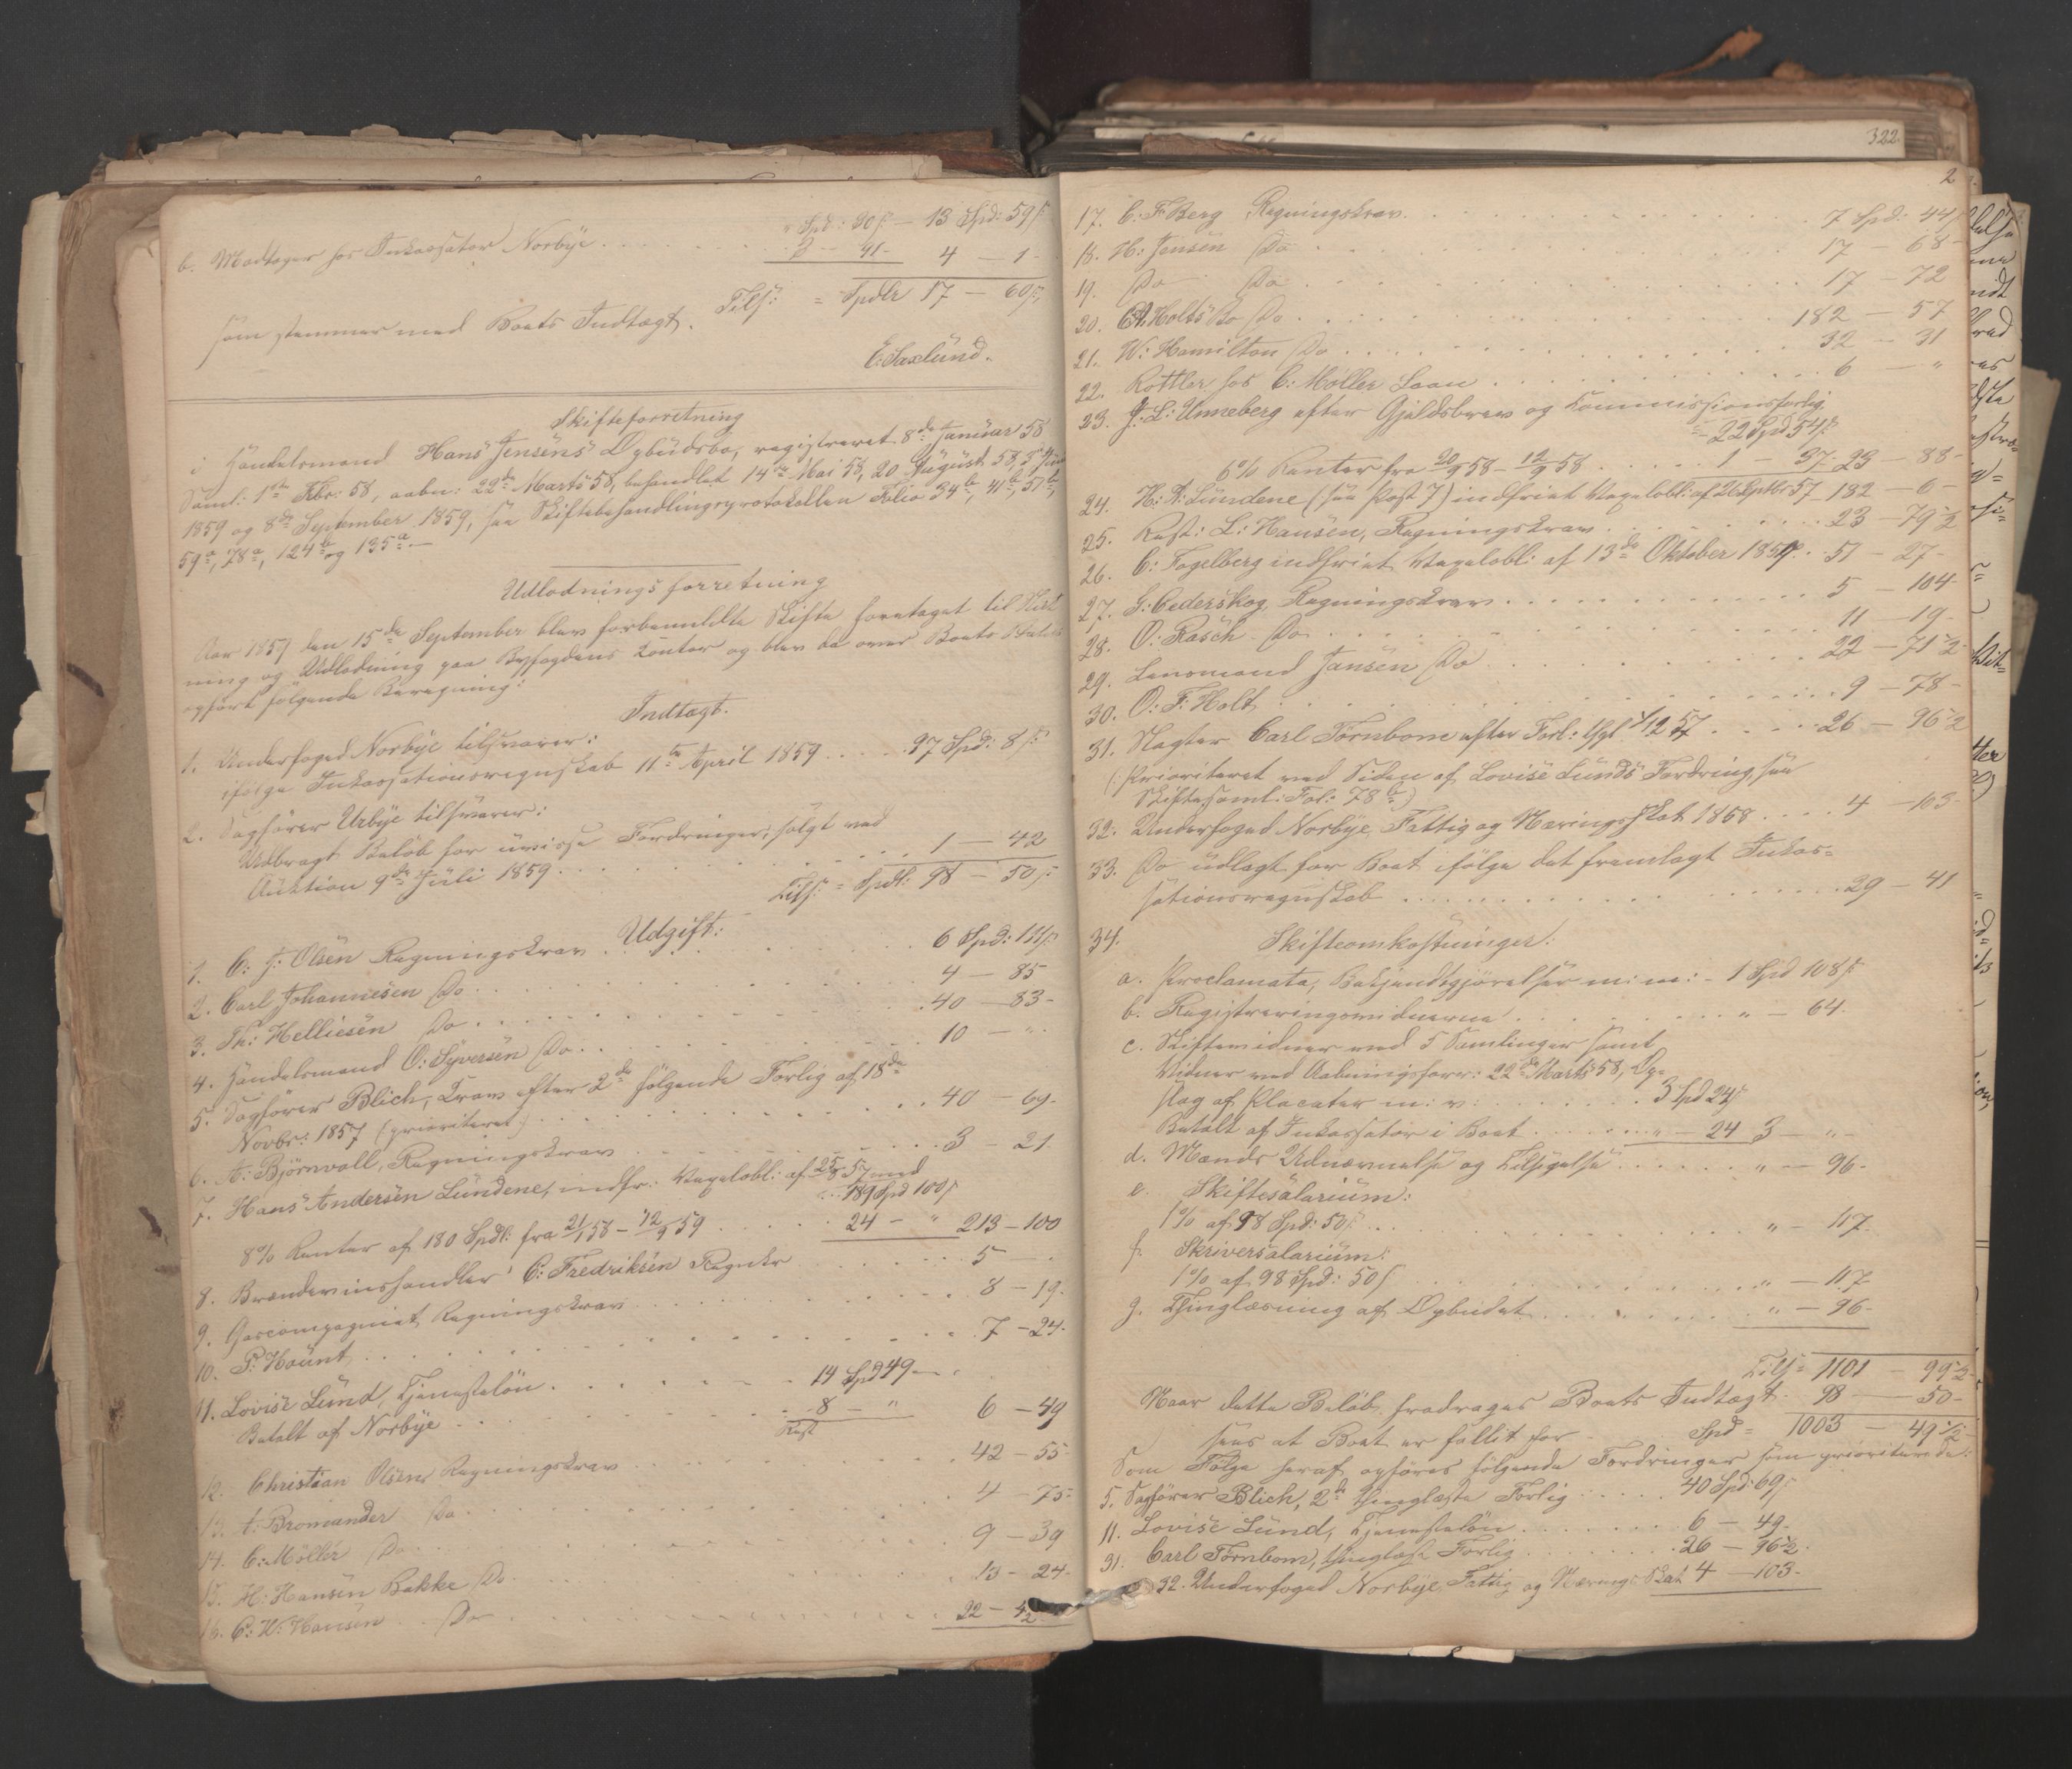 " Spd: 80 ß — 13 Spd: 59 ß
b. Modtager hos Inkassator Norbÿe . . . . . 3 — 41 - 4 — 1 -
Tils: = Spdlr 17 — 60 ß
som stemmer med Boets Indtægt.
E: Saxlund.
Skifteforretning
i Handelsmand Hans Jensens Opbudsbo, registreret 8de Januar 58
Saml: 1ste Febr: 58, aabn: 22de Marts 58, behandlet 14de Mai 58, 20 August 58, Juni
1859 og 8de September 1859, see Skiftebehandlingsprotokollen Folio 34b, 41b, 51b,
59a, 78a, 124b og 135a.—
Udlodningsforretning
Aar 1859 den 15de September blev forbemeldte Skifte foretaget til Slut
ning og Udlodning paa Byfogdens Contor og blev da over Boets Status
opført følgende Beregning:
Indtægt.
1. Underfoged Norbÿe tilsvarer:
ifølge Inkassationsregnskab 11te April 1859 . . . . 97 Spd: 8 ß
2. Sagfører Urbÿe tilsvarer:
Udbragt Beløb for uvisse Fordringer, solgt ved
Auktion 9de Juli 1859 . . . . . 1 — 42
Tils: = Spdl: 98 — 50 ß
Udgift:
1. C: J: Olsen Regningskrav . . . . 6 Spd: 111 ß
2. Carl Johannesen Do . . . . 4 — 85
3. Th: Helliesen Do . . . . 40 — 83 -
4. Handelsmand O: Syversen Do . . . . 10 — "
5. Sagfører Blich, Krav efter 2de følgende Forlig af 18de
Novbr: 1857 (prioriteret) . . . . 40 — 69 -
6. A: Björnvall, Regningskrav . . . . 3 — 21.
7. Hans Andersen Lundene, indfr: Vexelobl: af 25/8 57 med
. . 189 Spd 100 ß
8% Renter af 180 Spdl: fra 21/1 58 — 12/9 59 . . . . 24 — " 213 — 100
8. Brændevinshandler C: Fredriksen Regnkr . . . . 5 — .
9. Gascompagniet Regningskrav . . . . 8 — 19.
10. P: Hount . . . . 7 — 24.
11. Lovise Lund, Tjenesteløn . . . . 14 Spd 49 —
Betalt af Norbÿe . . . . 8 — "
Rest 6 — 49
12. Christian Olsens Regningskrav . . . . 42 — 55 -
13. A: Bromander Do . . . . 4 — 75 -
14. C: Möller Do . . . . 9 — 39
15. H: Hansen Bakke Do . . . . 13 — 24.
16. C: H: Hansen Do . . . . 22 —
322
2
17. C: F: Berg Regningskrav . . . . 7 Spd: 44 ß
18. H: Jensen Do . . . . 17 — 68 -
19. Do Do . . . . 17 — 72
20. Holts Bo Do . . . . 182 — 57
21. W: Hamilton Do . . . . 32 — 31
22. Rottler hos C: Möller Laan . . . . 6 — "
23. J: L: Unneberg efter Gjældsbrev og Commissionsforlig
22 Spd 54 ß
6% Renter fra 20/ 58 — 12/9 58 . . . . 1 — 37 - 23 — 88 -
24. H: A: Lundene (see Post 7) indfriet Vexelobl: af Septbr 57 182 — 6 -
25. Rest: L: Hansen, Regningskrav . . . . 23 — 79 1/2
26. C: Fogelberg indfriet Vexelobl: af 13de Oktober 1857 . . 51 — 27 -
27. G: Cederskog Regningskrav . . . . 5 — 104 -
28. O: Rasch Do . . . . 11 — 19 -
29. Lensmand Jansen Do . . . . 22 — 71 1/2
30. O: F: Holt . . . . 9 — 78 -
31. Slagter Carl Törnbom efter Forl: 12 57 . . . . 26 — 96 1/2
(: prioriteret ved Siden af Lovise Lunds Fordring, see
Skiftesaml: Fol: 78 b)
32. Underfoged Norbÿe, Fattig og Næringsskat 1858 . . . . 4 — 103 -
33. Do udlagt for Boet ifølge det fremlagt Inkas=
sationsregnskab . . . . 29 — 41
34. Skifteomkostninger:
a. Proclamata, Bekjendtgjørelser m: m: - 1 Spd 108 ß
b. Registreringsvidnerne . . . . " — 64.
c. Skiftevidner ved 5 Samlinger samt
Vidner ved Aabningsforr: 22de Marts 58, Op=
slag af Placater m: v: . . . . 3 Spd 24 ß
Betalt af Inkassator i Boet . . . . " — 24 3 — " -
d. Mænds Udnævnelse og Tilsigelse . . . . " — 96 -
e. Skiftesalarium:
1% af 98 Spd: 50 ß . . . . " — 117.
f. Skriversalarium:
1% af 98 Spd: 50 ß . . . . " — 117 -
g. Thinglæsning af Opbudet . . . . " — 96 -
Tils = 1101 — 99 1/2
Naar dette Beløb fradrages Boets Indtægt 98 — 50 -
sees at Boet er fallit for Spd = 1003 — 49 1/2
Som Følge heraf opføres følgende Fordringer som prioriterede:
5. Sagfører Blich, 2de thinglæste Forlig . . . . 40 Spd: 69 ß
11. Lovise Lund, Tjenesteløn . . . . 6 — 49 -
31. Carl Törnbom, thinglæst Forlig . . . . 26 — 96 1/2
32. Underfoged Norbÿe Fattig og Nærings Skat 4 — 103 -